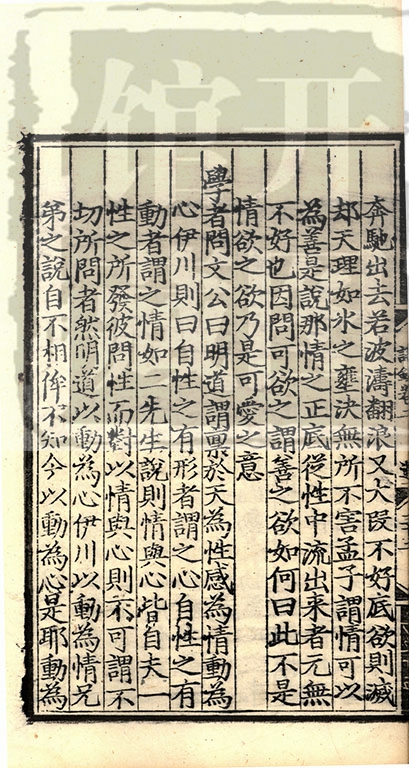 馆开
奔馳出去若波濤翻浪又大段不好底欲則滅
却天理如水之壅決無所不害孟子謂情可以
為善是說那情之正底從性中流出来者元無
不好也因問可欲之謂善之欲如何曰此不是
情欲之欲乃是可愛之意
學者問文公曰明道謂禀於天為性感為情動為
心伊川則曰自性之有形者謂之心自性之有
動者謂之情如二先生說則情與心皆自夫一
性之所發彼問性而對以情與心則不可謂不
切所問者然明道以動為心伊川以動為情兄
第之說自不相侔不知今以動為心是耶動為